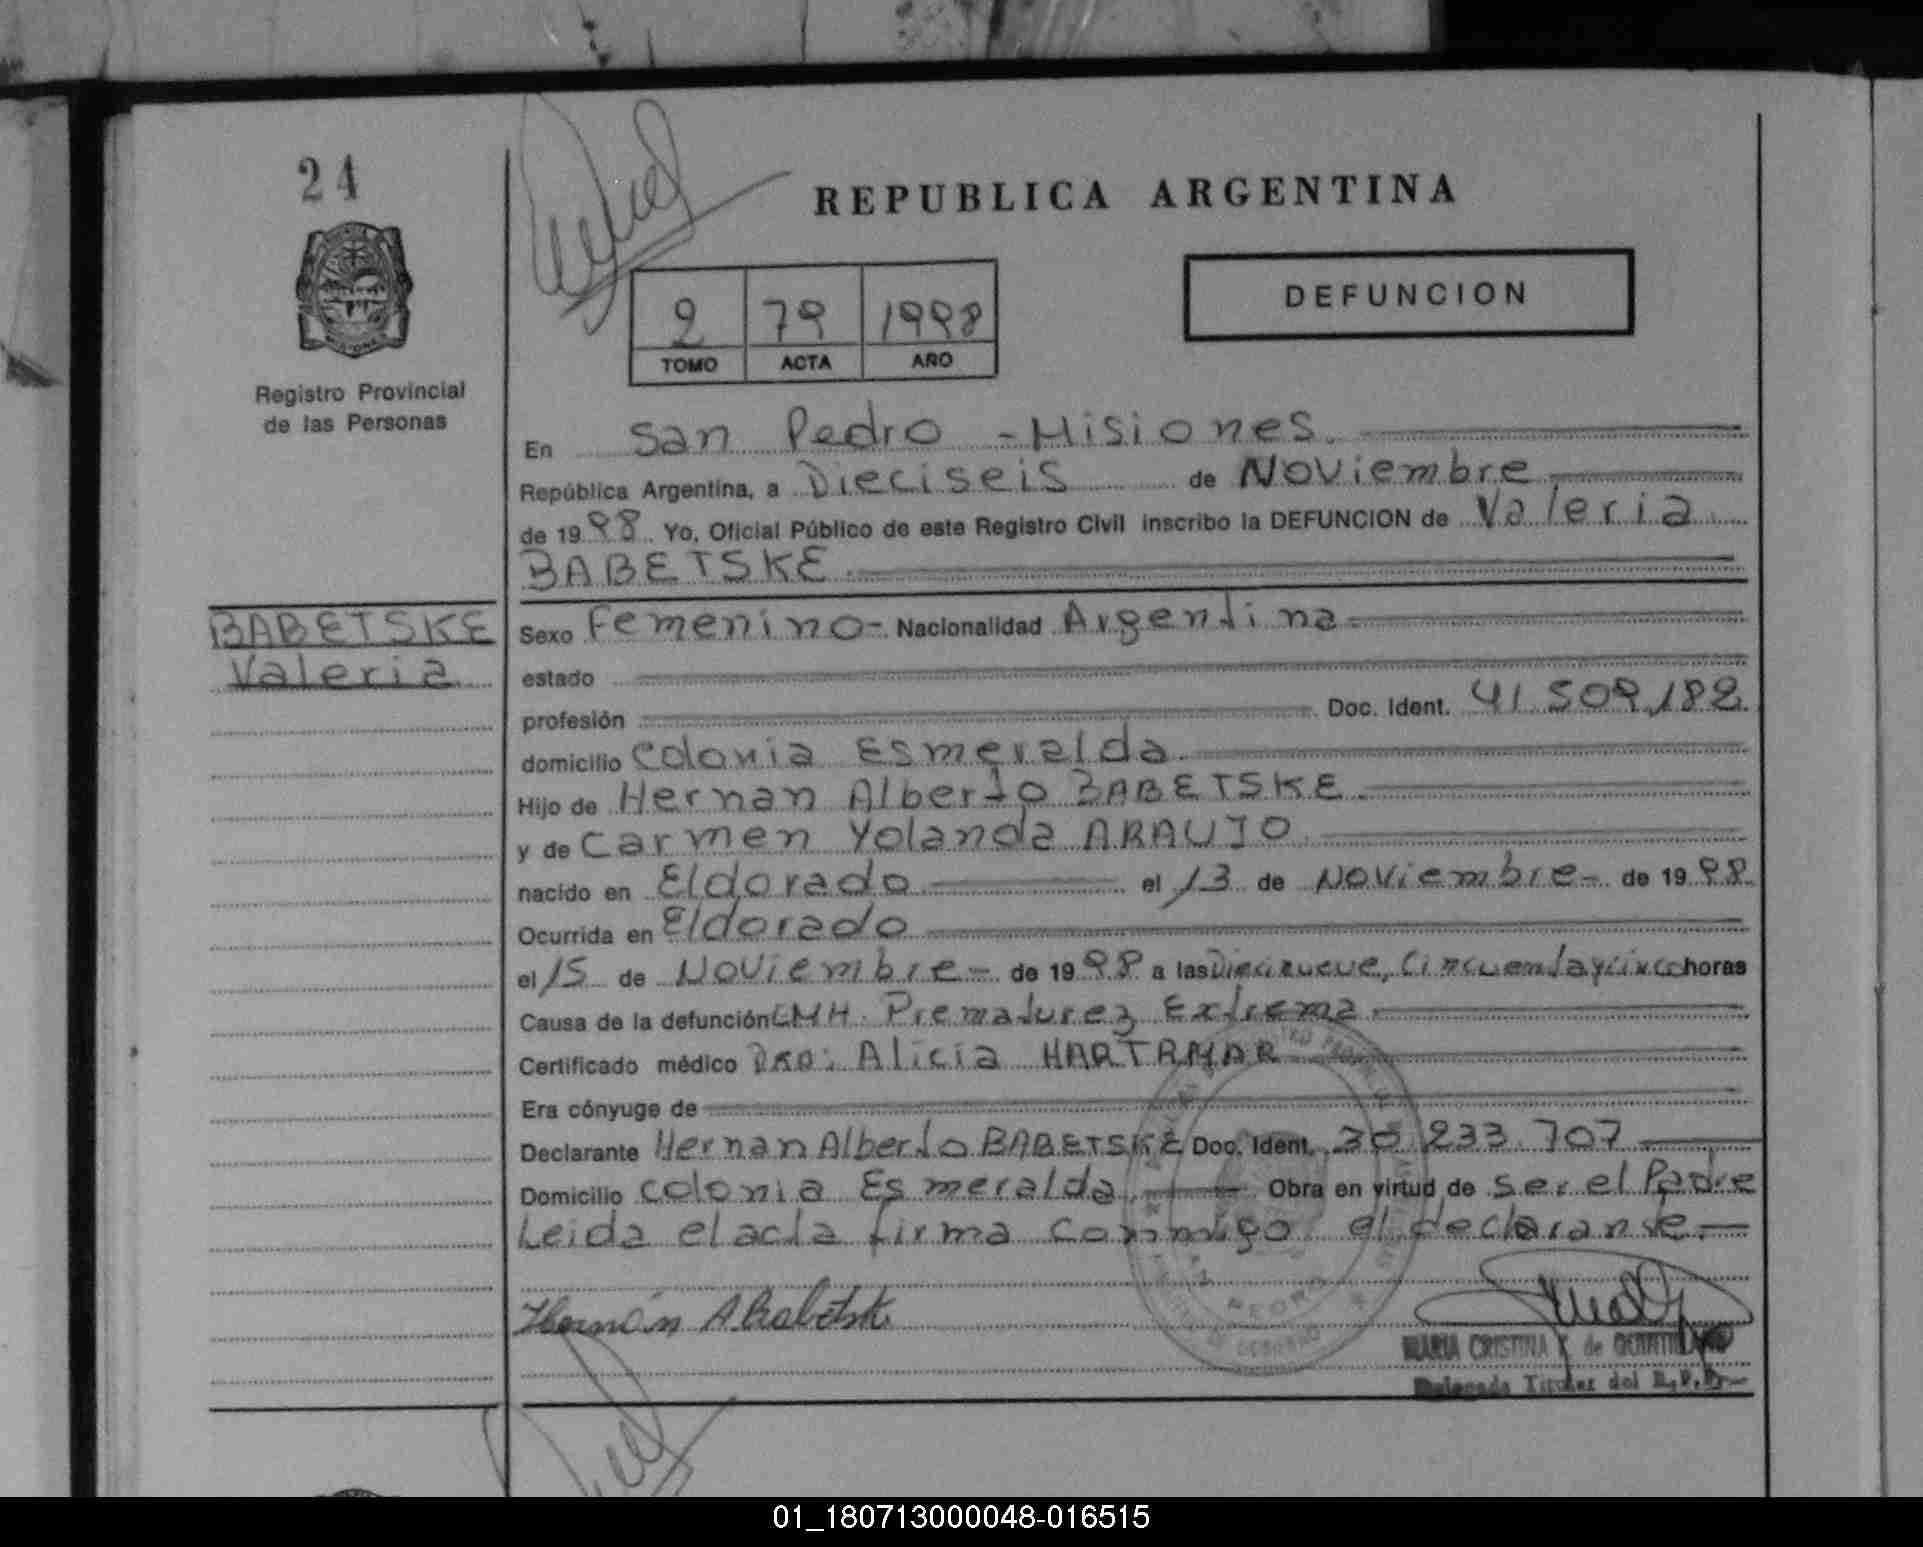 24
REPUBLICA ARGENTINA
DEFUNCION
2 79 1998
TOMO ACTA AÑO
Registro Provincial
de las Personas
En San Pedro - Misiones.
República Argentina, a Dieciseis de Noviembre
de 1998 Yo, Oficial Público de este Registro Civil inscribo la DEFUNCION de Valeria
BABETSKE.
BABETSKE
Valeria
Sexo Femenino - Nacionalidad Argentina
estado
profesión Doc. Ident. 41.509.182
domicilio Colonia Esmeralda.
Hijo de Hernan Alberto BABETSKE.
y de Carmen Yolanda ARAUJO.
nacido en Eldorado el 13 de Noviembre - de 1998
Ocurrida en Eldorado
el 15 de Noviembre - de 1998 a las Diecinueve, Cincuentaycinco horas
Causa de la defunción Prematurez Extrema.
Certificado médico Dra: Alicia
Era cónyuge de
Declarante Hernan Alberto BABETSKE Doc. Ident. 30.233.707
Domicilio Colonia Esmeralda. Obra en virtud de ser el Padre
Leida el acta firma conmigo el declarante.
Hernán A Babetsk
MARIA CRISTINA de
Delegada Titular del R.P.P.
01_180713000048-016515